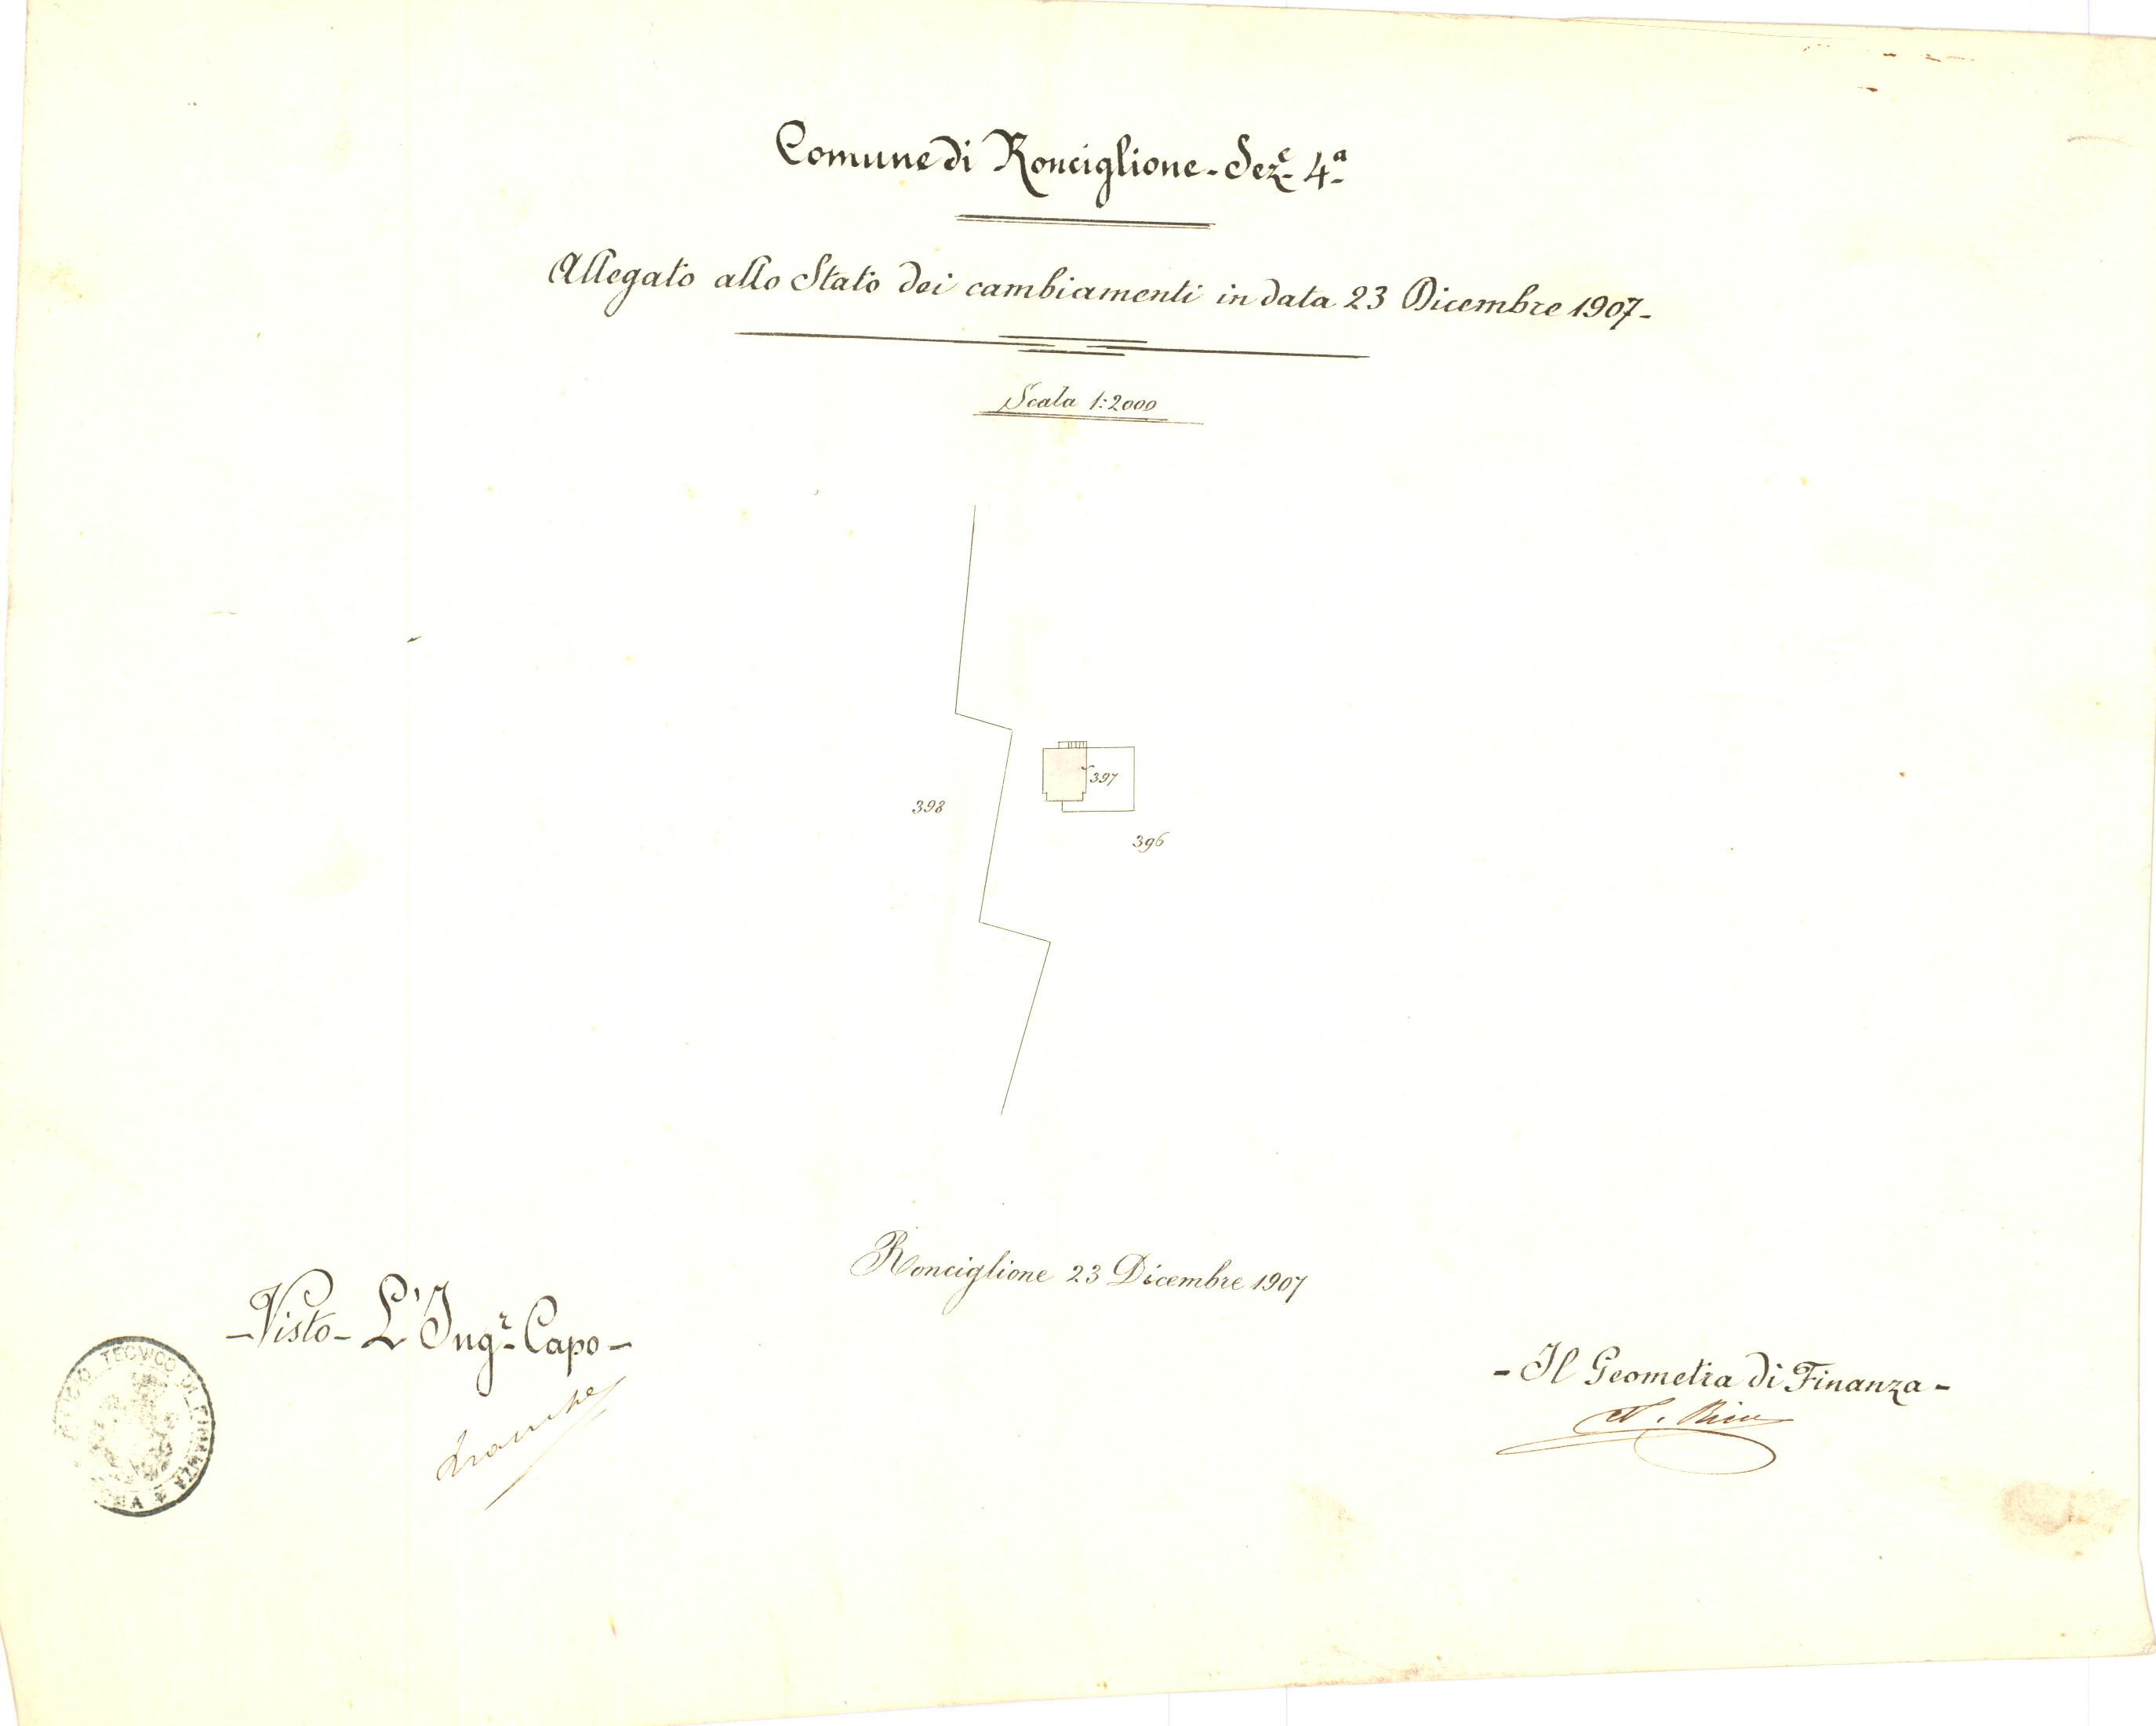 Comune di Ronciglione - Sezᵉ 4ª
Allegato allo Stato dei cambiamenti in data 23 Dicembre 1907 -
Scala 1:2000
397
398
396
Ronciglione 23 Dicembre 1907
- Visto - L'Ingʳ Capo -
TECNICO DI FINANZA
- Il Geometra di Finanza -